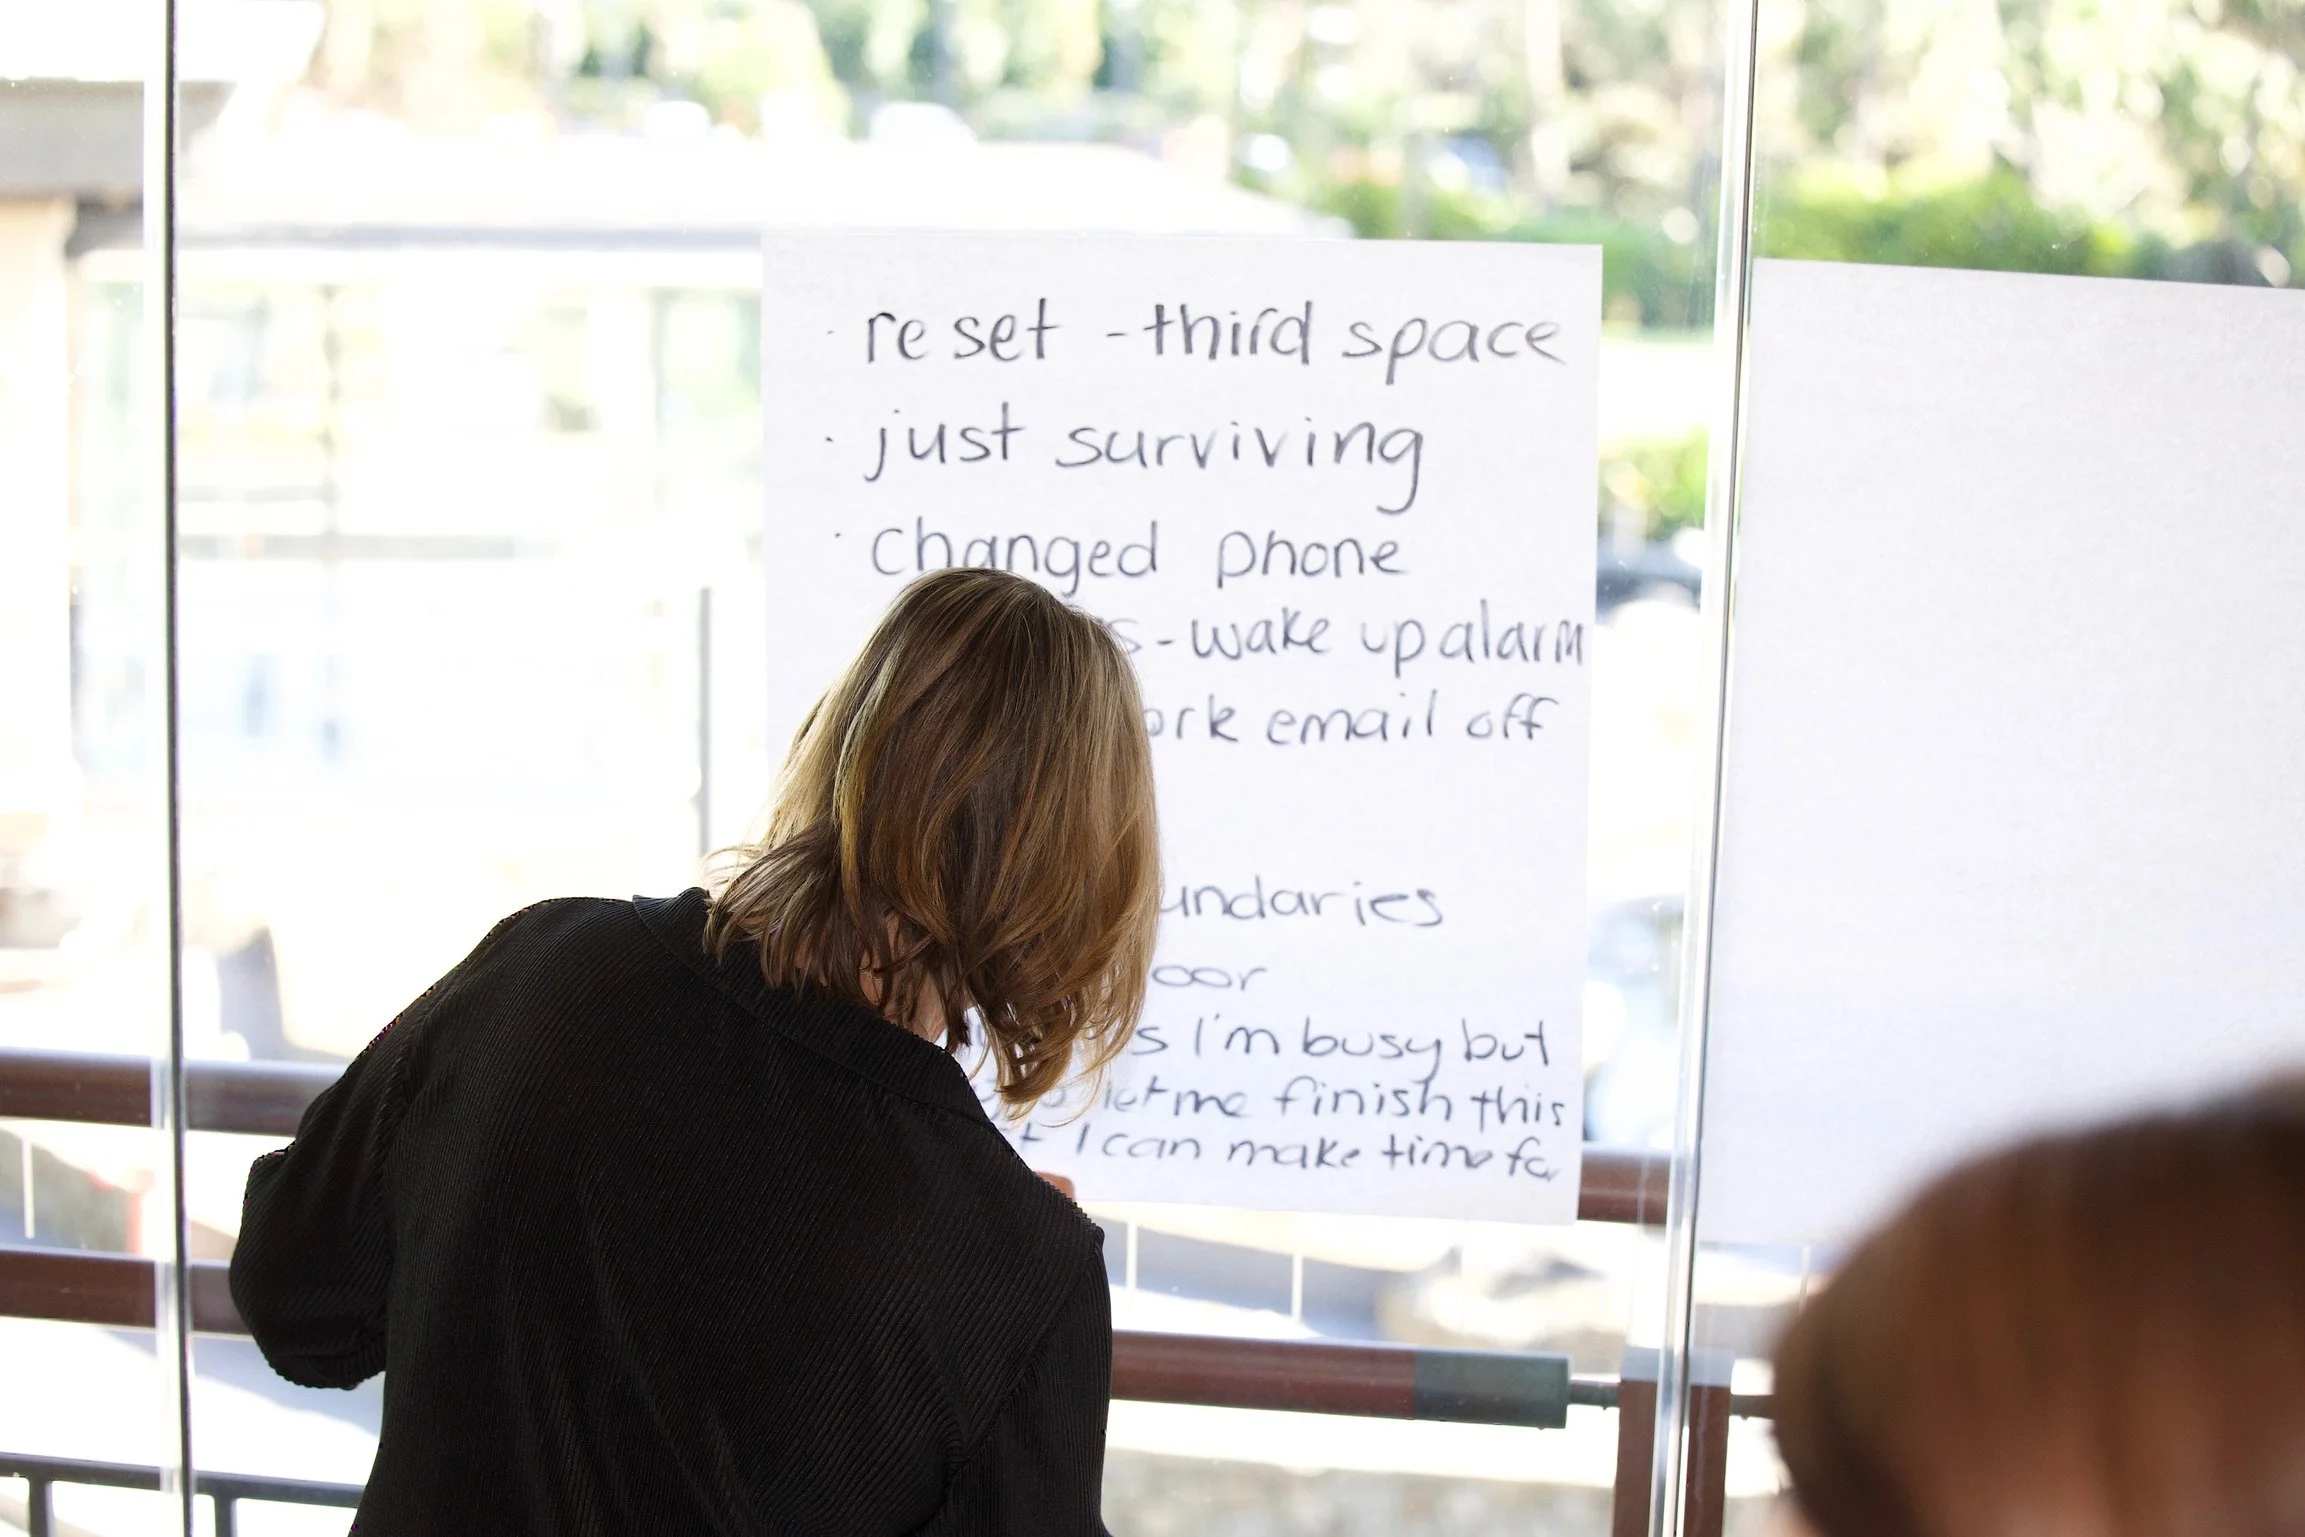 · reset - third space
· just surviving
· changed phone
- wake up alarm
email off
I'm busy but
let me finish this
I can make time